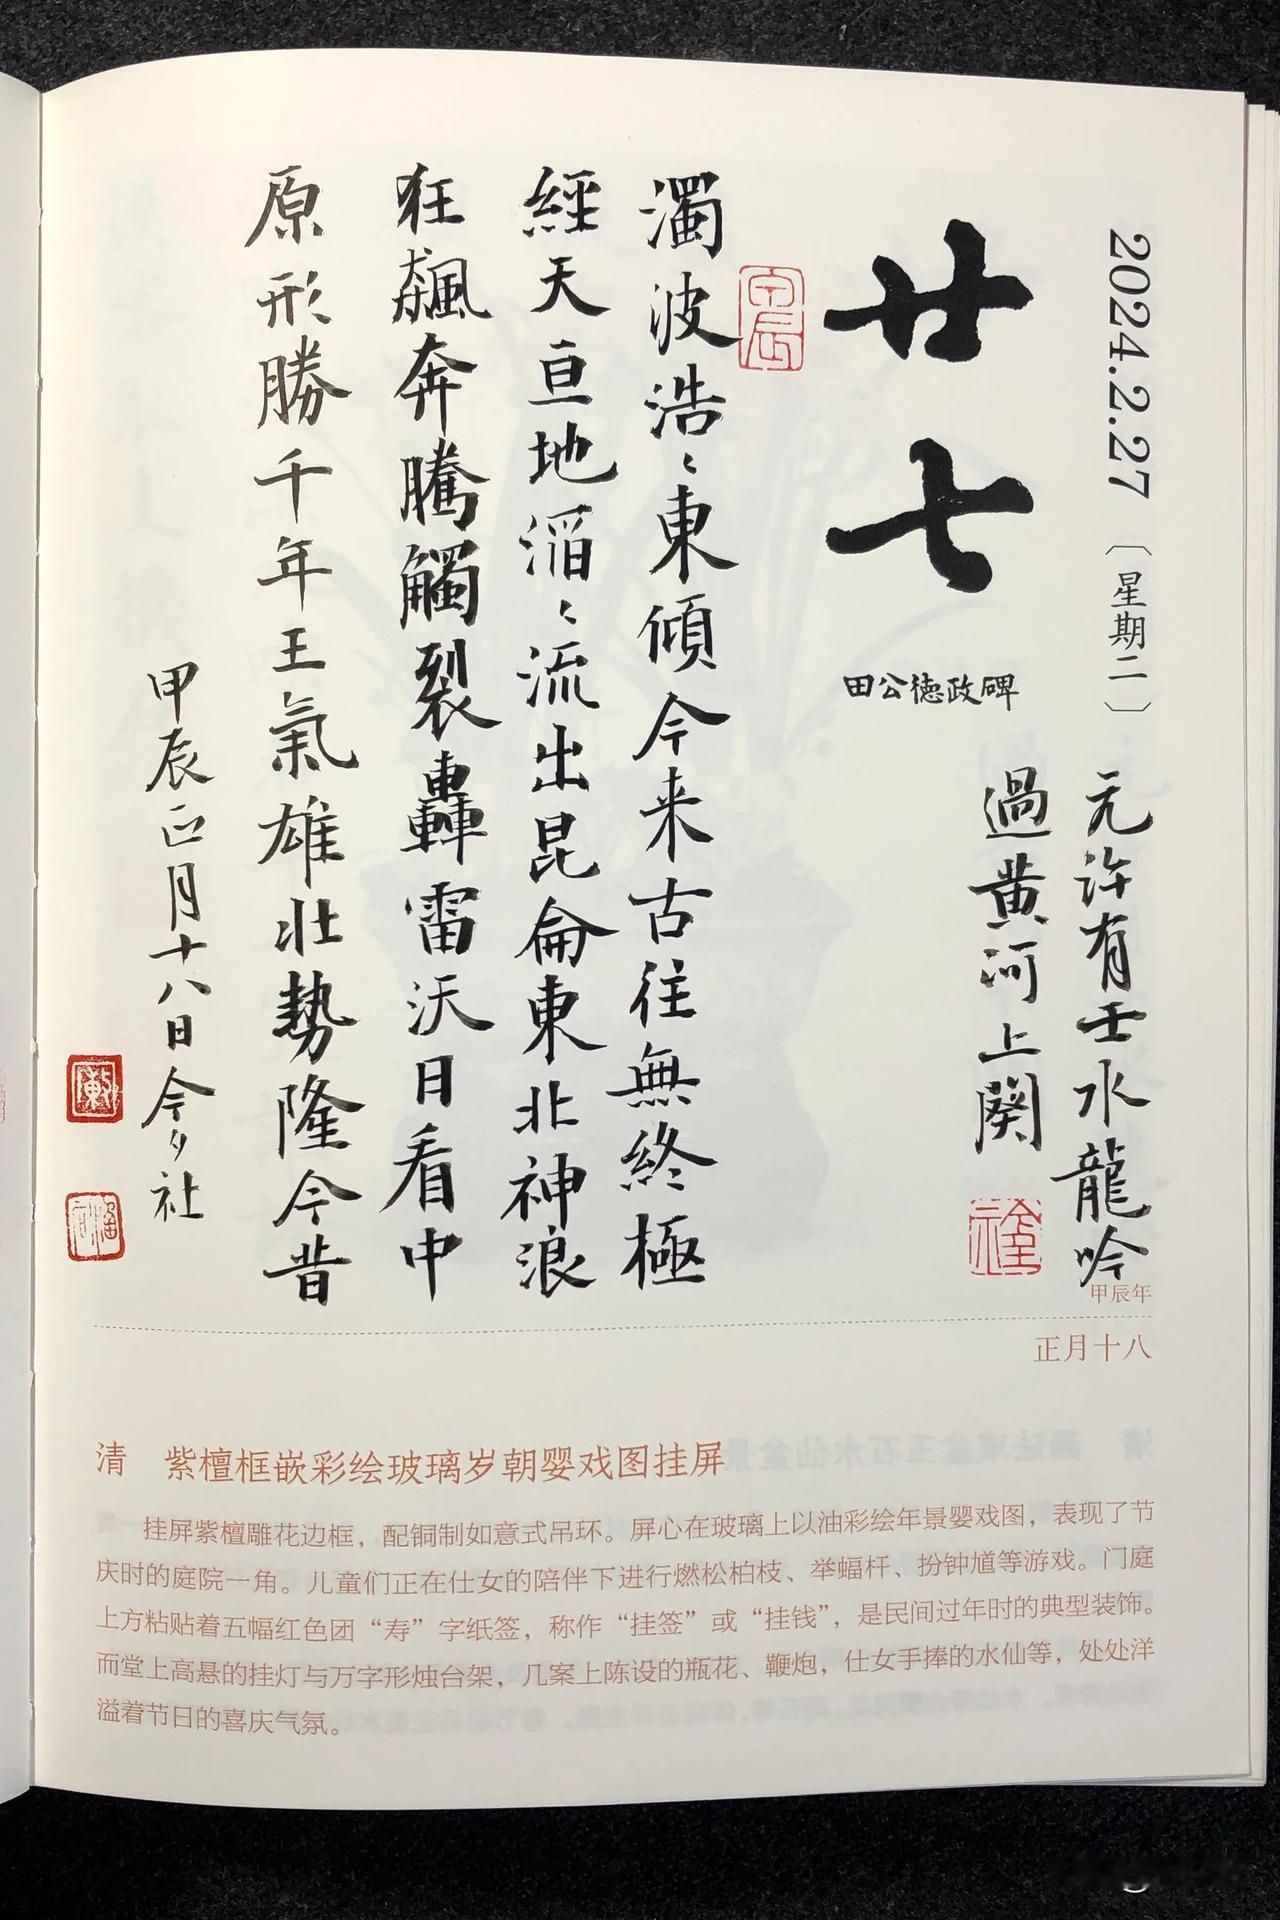 2024.2.27〔星期二〕
廿七
田公德政碑
元许有壬水龍吟
過黄河上闋
濁波浩〻東傾今来古往無終極
經天亘地滔〻流出昆侖東北神浪
狂飆奔騰觸裂轟雷沃日看中
原形勝千年王氣雄壯勢隆今昔
甲辰正月十八日今夕社
甲辰年
正月十八
清 紫檀框嵌彩绘玻璃岁朝婴戏图挂屏
挂屏紫檀雕花边框，配铜制如意式吊环。屏心在玻璃上以油彩绘年景婴戏图，表现了节
庆时的庭院一角。儿童们正在仕女的陪伴下进行燃松柏枝、举蝠杆、扮钟馗等游戏。门庭
上方粘贴着五幅红色团“寿”字纸签，称作“挂签”或“挂钱”，是民间过年时的典型装饰。
而堂上高悬的挂灯与万字形烛台架，几案上陈设的瓶花、鞭炮，仕女手捧的水仙等，处处洋
溢着节日的喜庆气氛。